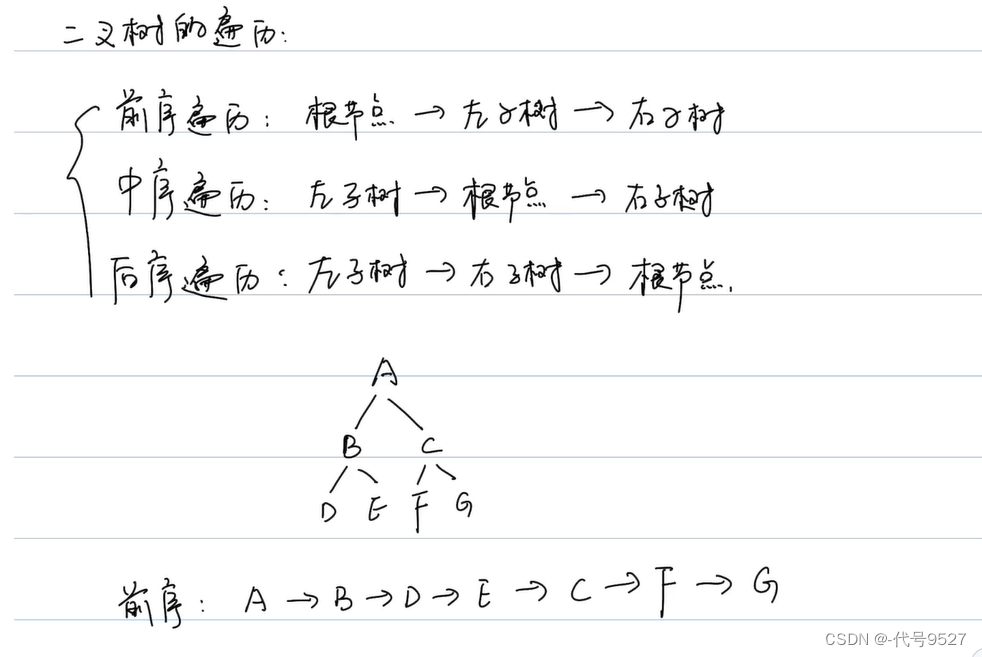 二叉树的遍历:
前序遍历: 根节点 → 左子树 → 右子树
中序遍历: 左子树 → 根节点 → 右子树
后序遍历: 左子树 → 右子树 → 根节点.
A
B C
D E F G
前序: A → B → D → E → C → F → G
CSDN @-代号9527